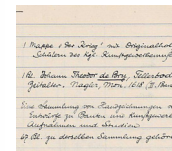 1 Mappe "Der Krieg" mit Originalholz
Schülern des Kgl. Kunstgewerbemus
1 Bl. Johann Theodor de Bry, Tellerbod
Zeitalter. Nagler, Mon. 1618 (II. Band
Eine Sammlung von Handzeichnungen v
Entwürfe zu Bauten und kunstgewerb
Aufnahmen und Studien
67 Bl. zu derselben Sammlung gehör